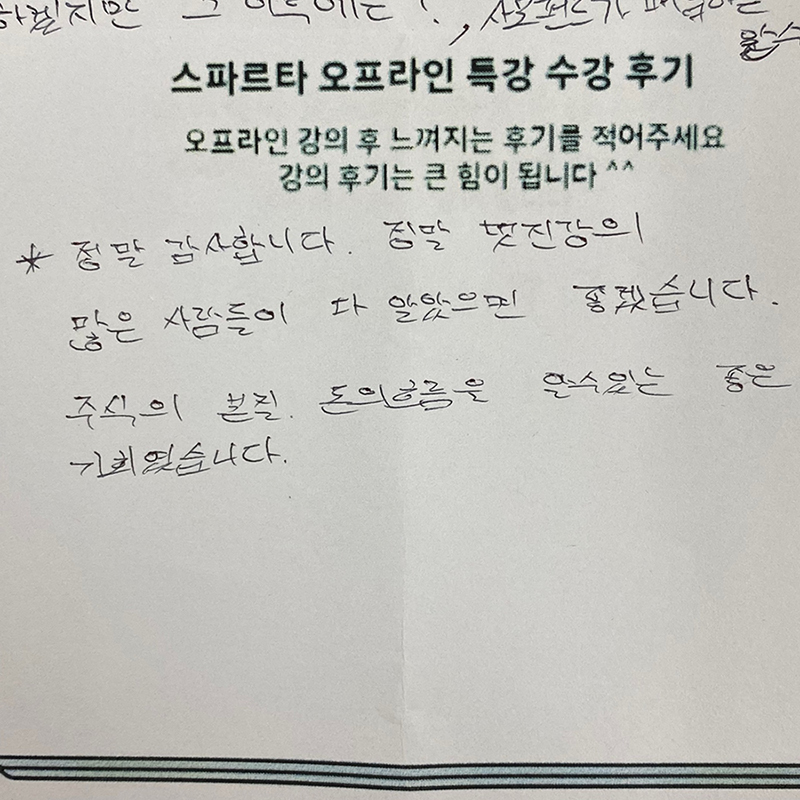 하겠지만 그 이후에는
스파르타 오프라인 특강 수강 후기
오프라인 강의 후 느껴지는 후기를 적어주세요
강의 후기는 큰 힘이 됩니다 ^^
* 정말 감사합니다. 정말 멋진강의
많은 사람들이 다 알았으면 좋겠습니다.
주식의 본질. 돈의흐름을 알수있는 좋은
기회였습니다.